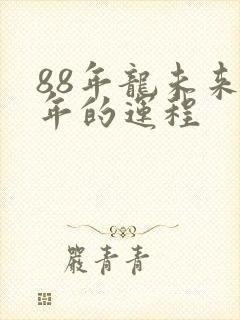 88年龍未来
年的運程
嚴青青